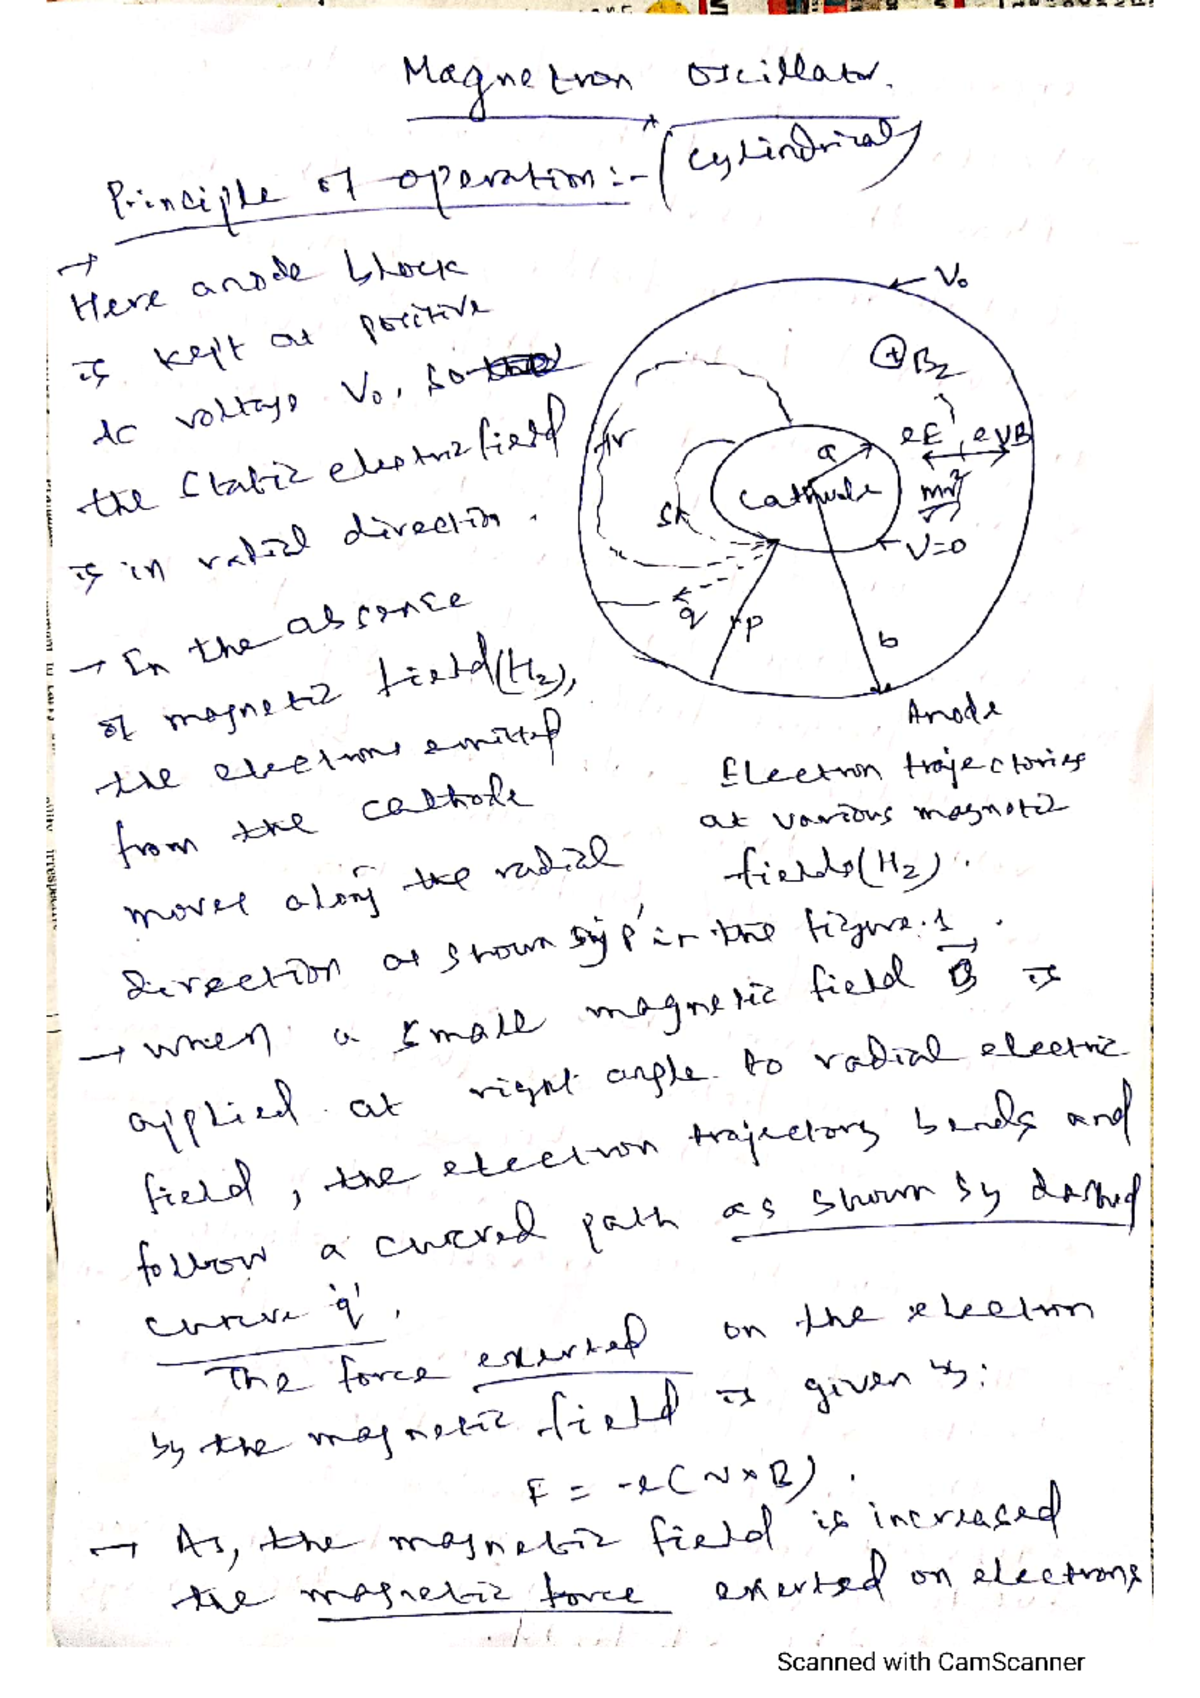 Magnetron Oscillator.
Principle of operation:- (Cylindrical)
→
Here anode block
is kept at positive
dc voltage V₀, so
the static electric field
is in radial direction.
→ In the absence
of magnetic field (Hz),
the electrons emitted
from the cathode
moves along the radial
direction as shown by 'p' in the figure.1.
V₀
⊕ Bz
eE, eVB
mv²/r
a
Cathode
V=0
r
s
q
p
b
Anode
Electron trajectories
at various magnetic
fields (Hz).
→ when a small magnetic field B⃗ is
applied at right angle to radial electric
field, the electron trajectory bends and
follow a curved path as shown by dashed
curve 'q'.
The force exerted on the electron
by the magnetic field is given by:
F = -e(v×B).
→ As, the magnetic field is increased
the magnetic force exerted on electrons
Scanned with CamScanner